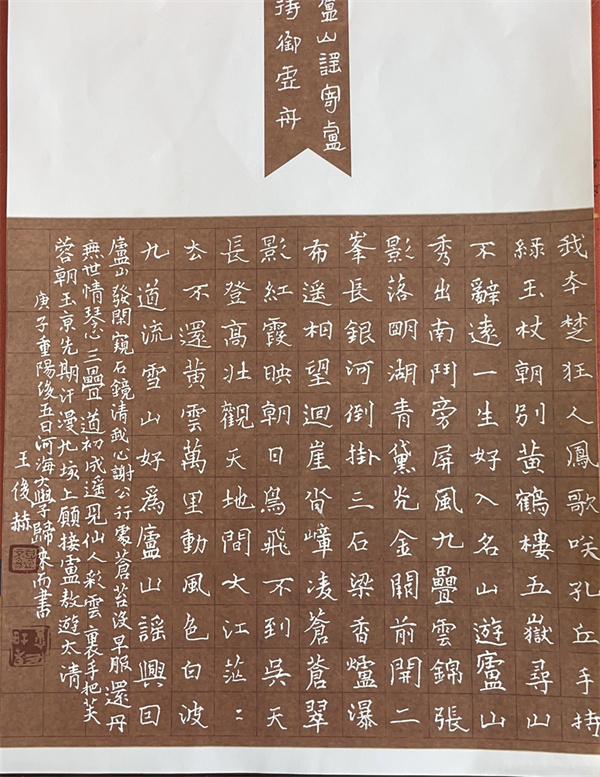 廬山謠寄盧
侍御虛舟
我本楚狂人鳳歌咲孔丘手持
綠玉杖朝別黃鶴樓五嶽尋山
不辭遠一生好入名山遊廬山
秀出南鬥旁屏風九疊雲錦張
影落明湖青黛光金闕前開二
峯長銀河倒掛三石梁香爐瀑
布遥相望迴崖沓嶂凌蒼蒼翠
影紅霞映朝日鳥飛不到吳天
長登高壯觀天地間大江茫〻
去不還黃雲萬里動風色白波
九道流雪山好為廬山謠興因
廬山發閑窺石鏡清我心謝公行處蒼苔沒早服還丹
無世情琴心三疊道初成遥見仙人彩雲裏手把芙
蓉朝玉京先期汗漫九垓上願接盧敖遊太清
庚子重陽後五日河海大學歸來而書
王後赫